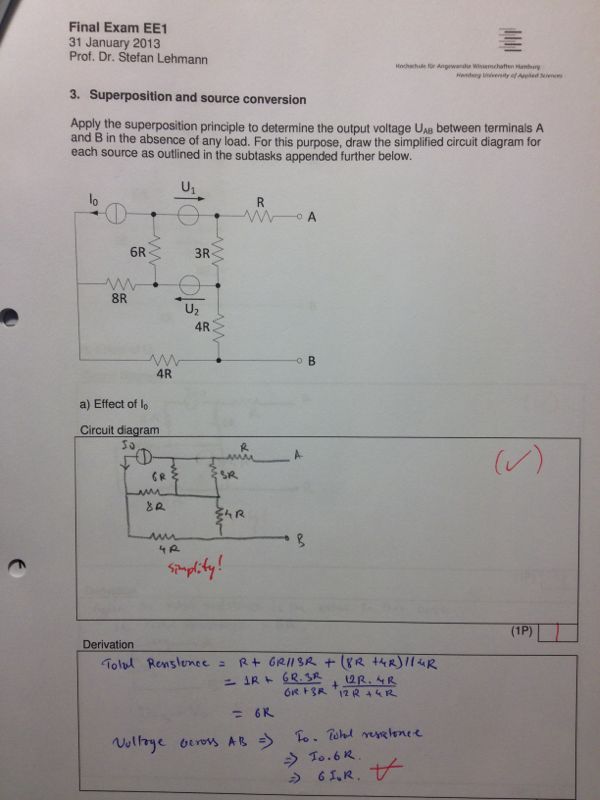 Final Exam EE1
31 January 2013
Prof. Dr. Stefan Lehmann
Hochschule für Angewandte Wissenschaften Hamburg
Hamburg University of Applied Sciences
3. Superposition and source conversion
Apply the superposition principle to determine the output voltage UAB between terminals A
and B in the absence of any load. For this purpose, draw the simplified circuit diagram for
each source as outlined in the subtasks appended further below.
I0
U1
R
A
6R
3R
8R
U2
4R
4R
B
a) Effect of I0
Circuit diagram
I0
R
A
6R
3R
8R
4R
4R
B
simplify!
(✓)
(1P) 1
Derivation
Total Resistance = R + 6R//3R + (8R + 4R)//4R
= 1R + 6R.3R/6R+3R + 12R.4R/12R+4R
= 6R
Voltage across AB => I0. Total resistance
=> I0.6R.
=> 6I0R. ✓